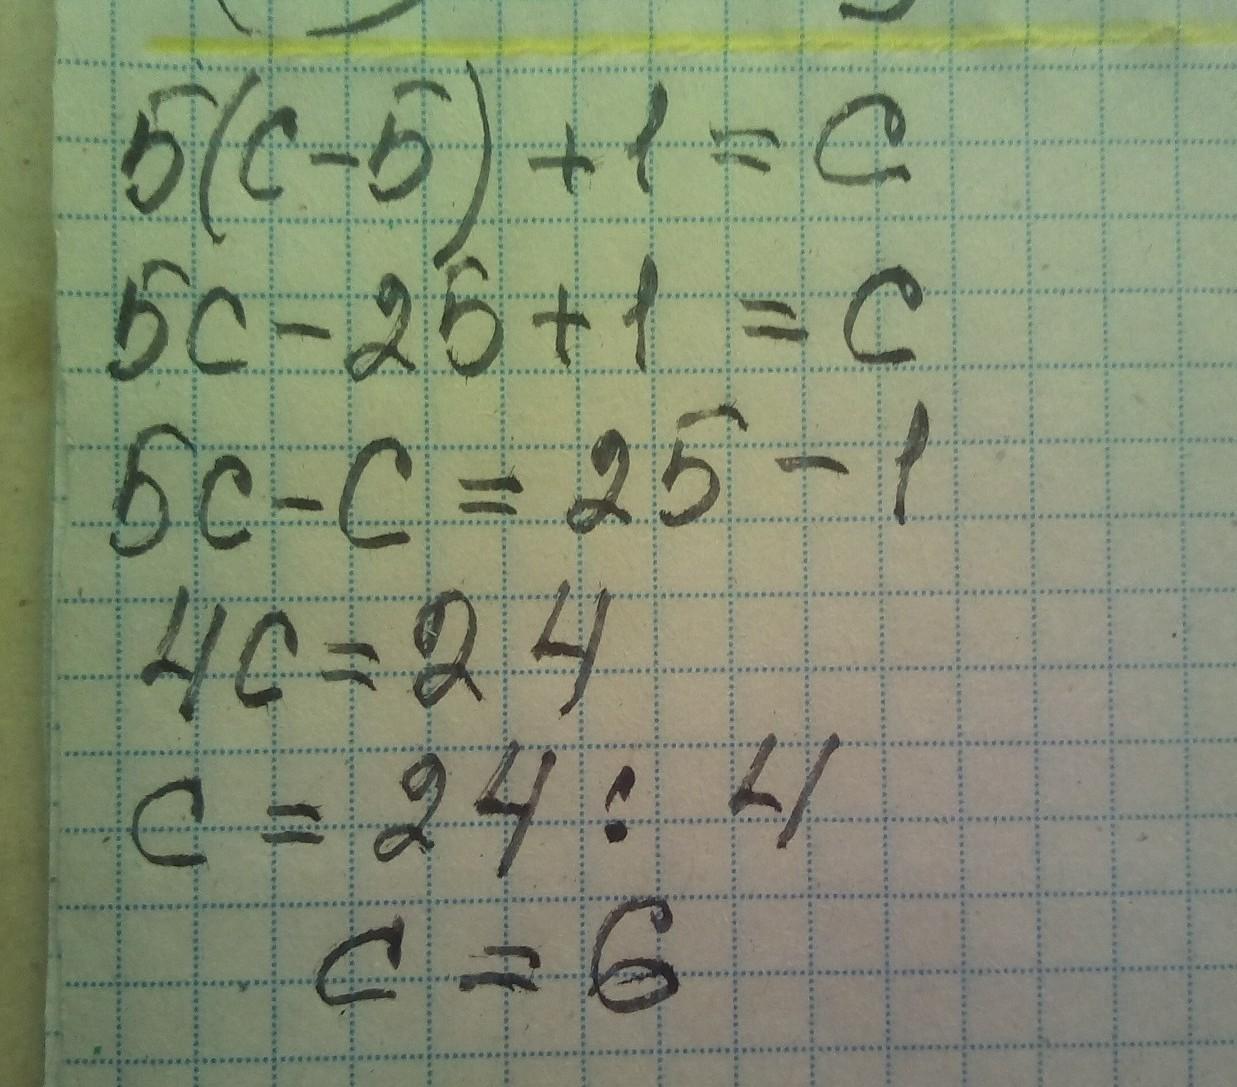 5(c-5)+1=c
5c-25+1=c
5c-c=25-1
4c=24
c=24:4
c=6